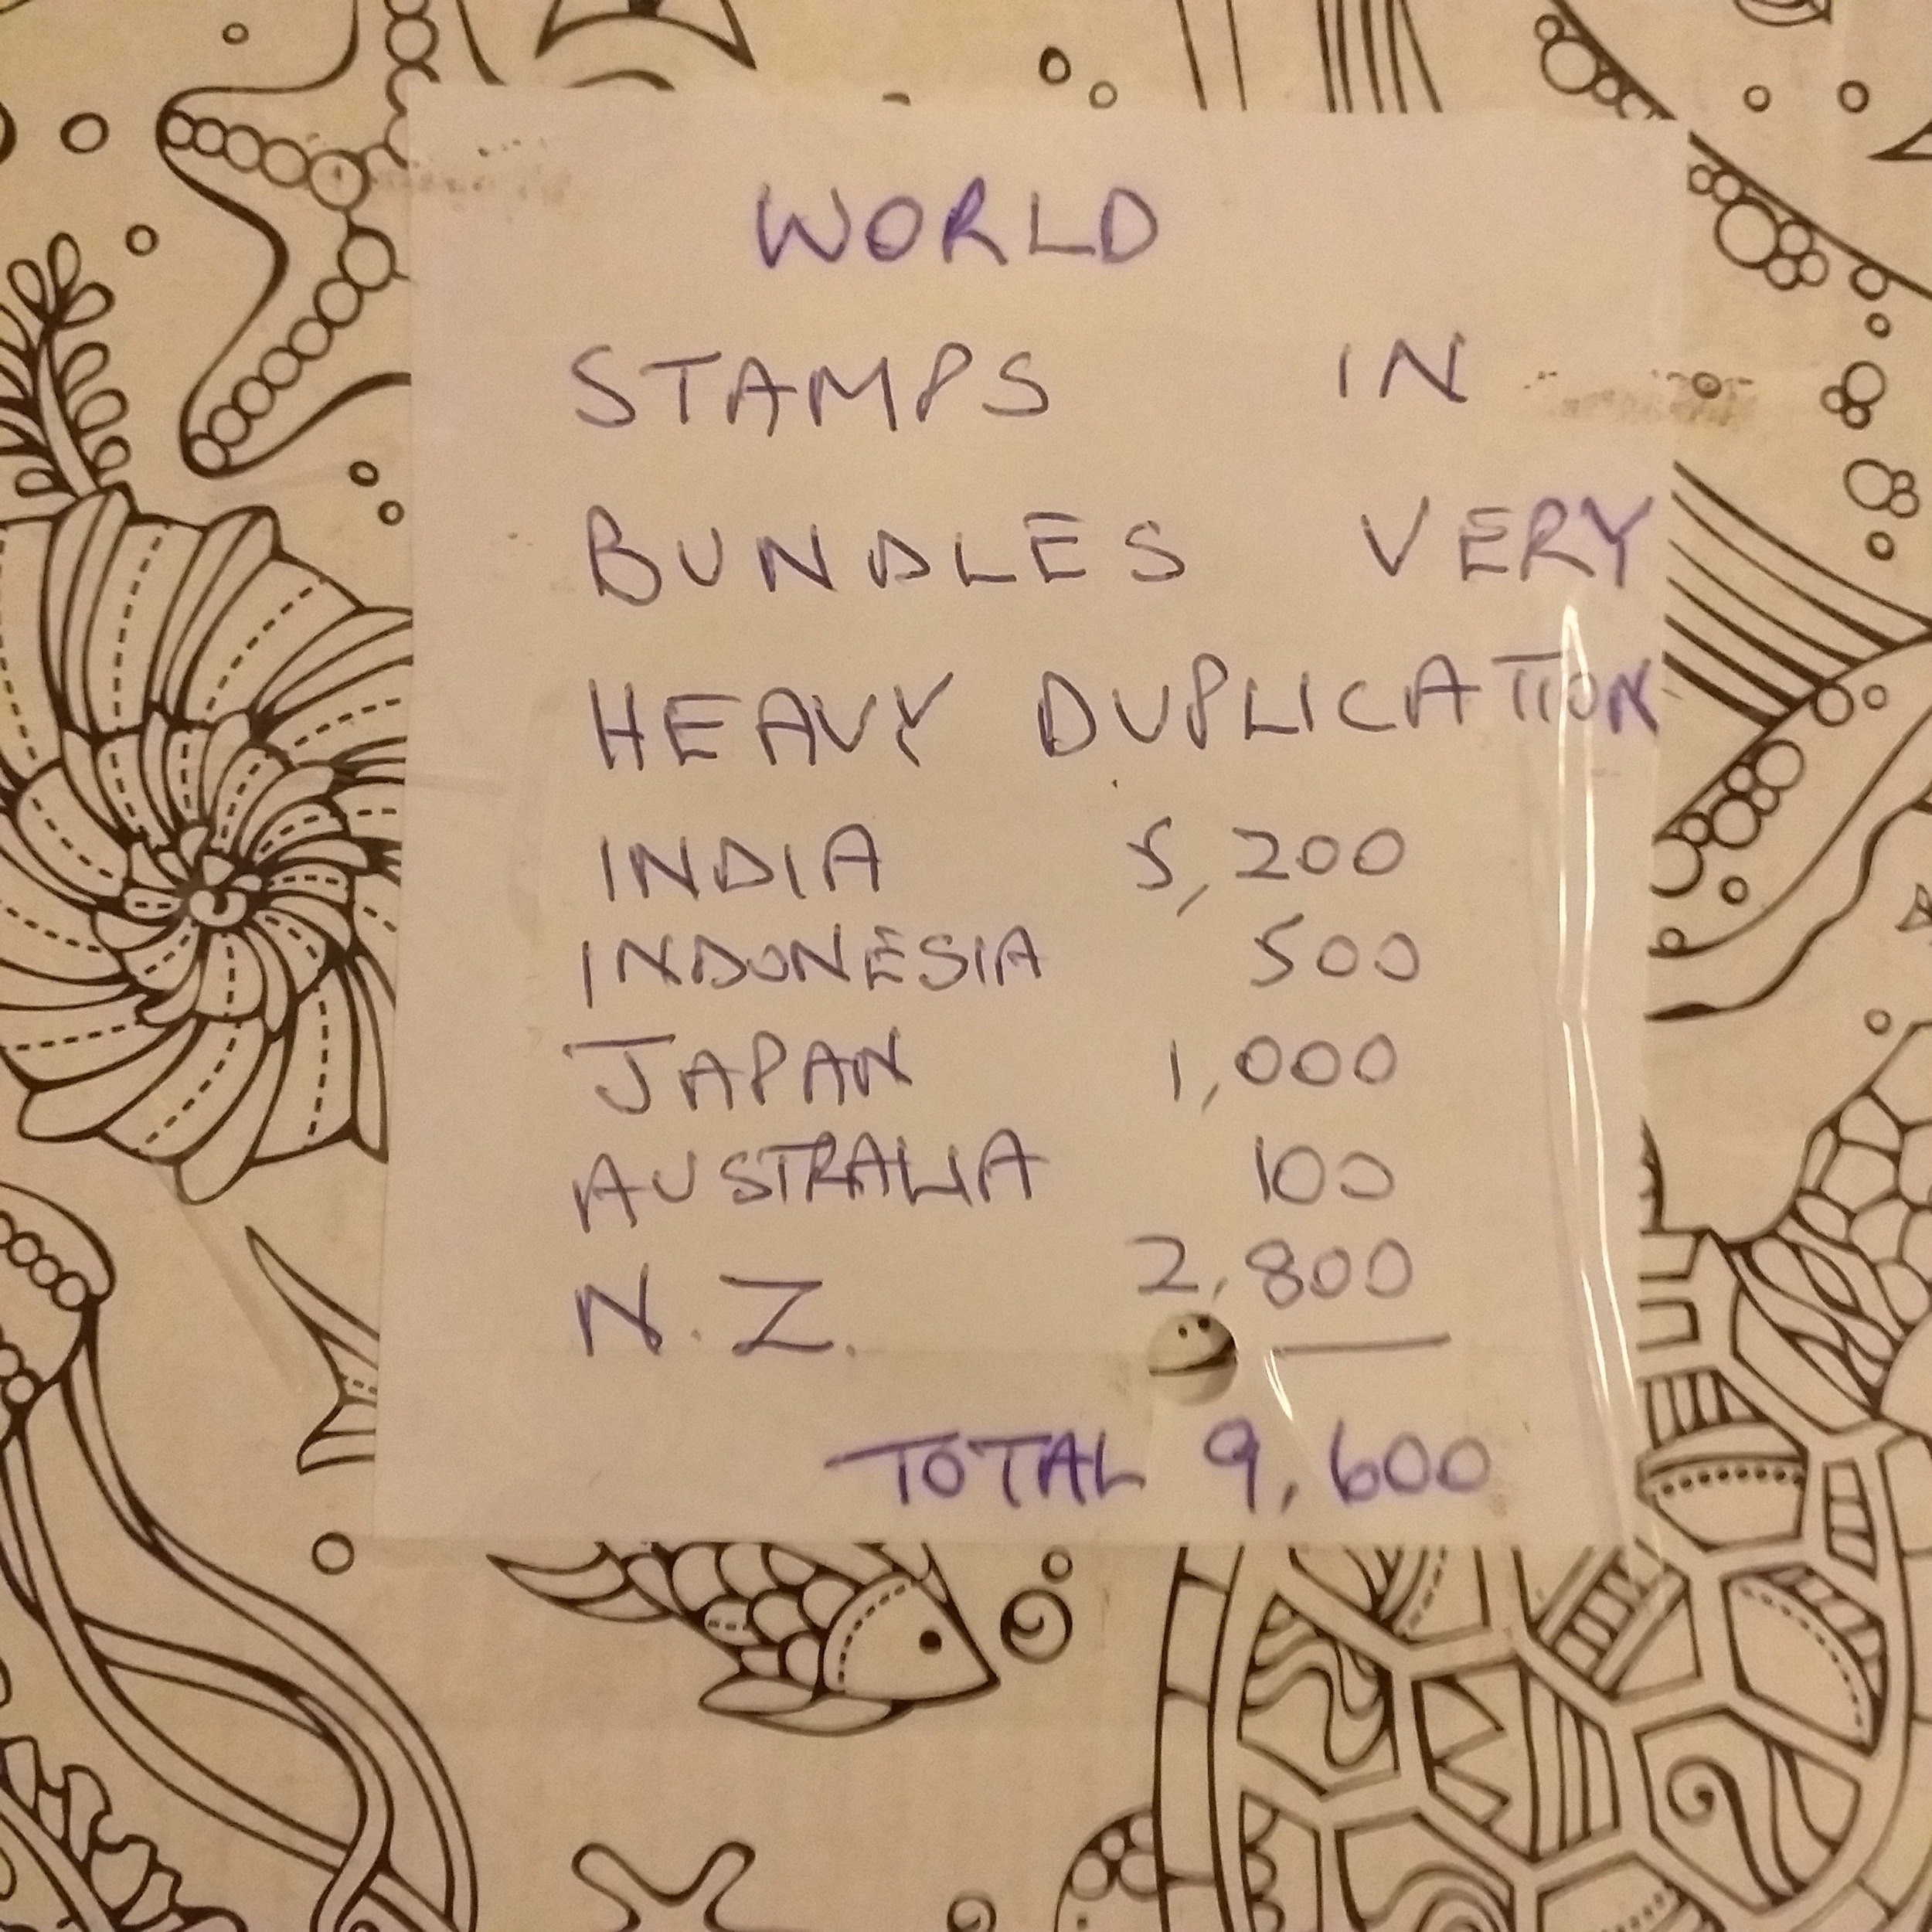 WORLD
STAMPS IN
BUNDLES VERY
HEAVY DUPLICATION
INDIA 5,200
INDONESIA 500
JAPAN 1,000
AUSTRALIA 100
N.Z. 2,800
TOTAL 9,600